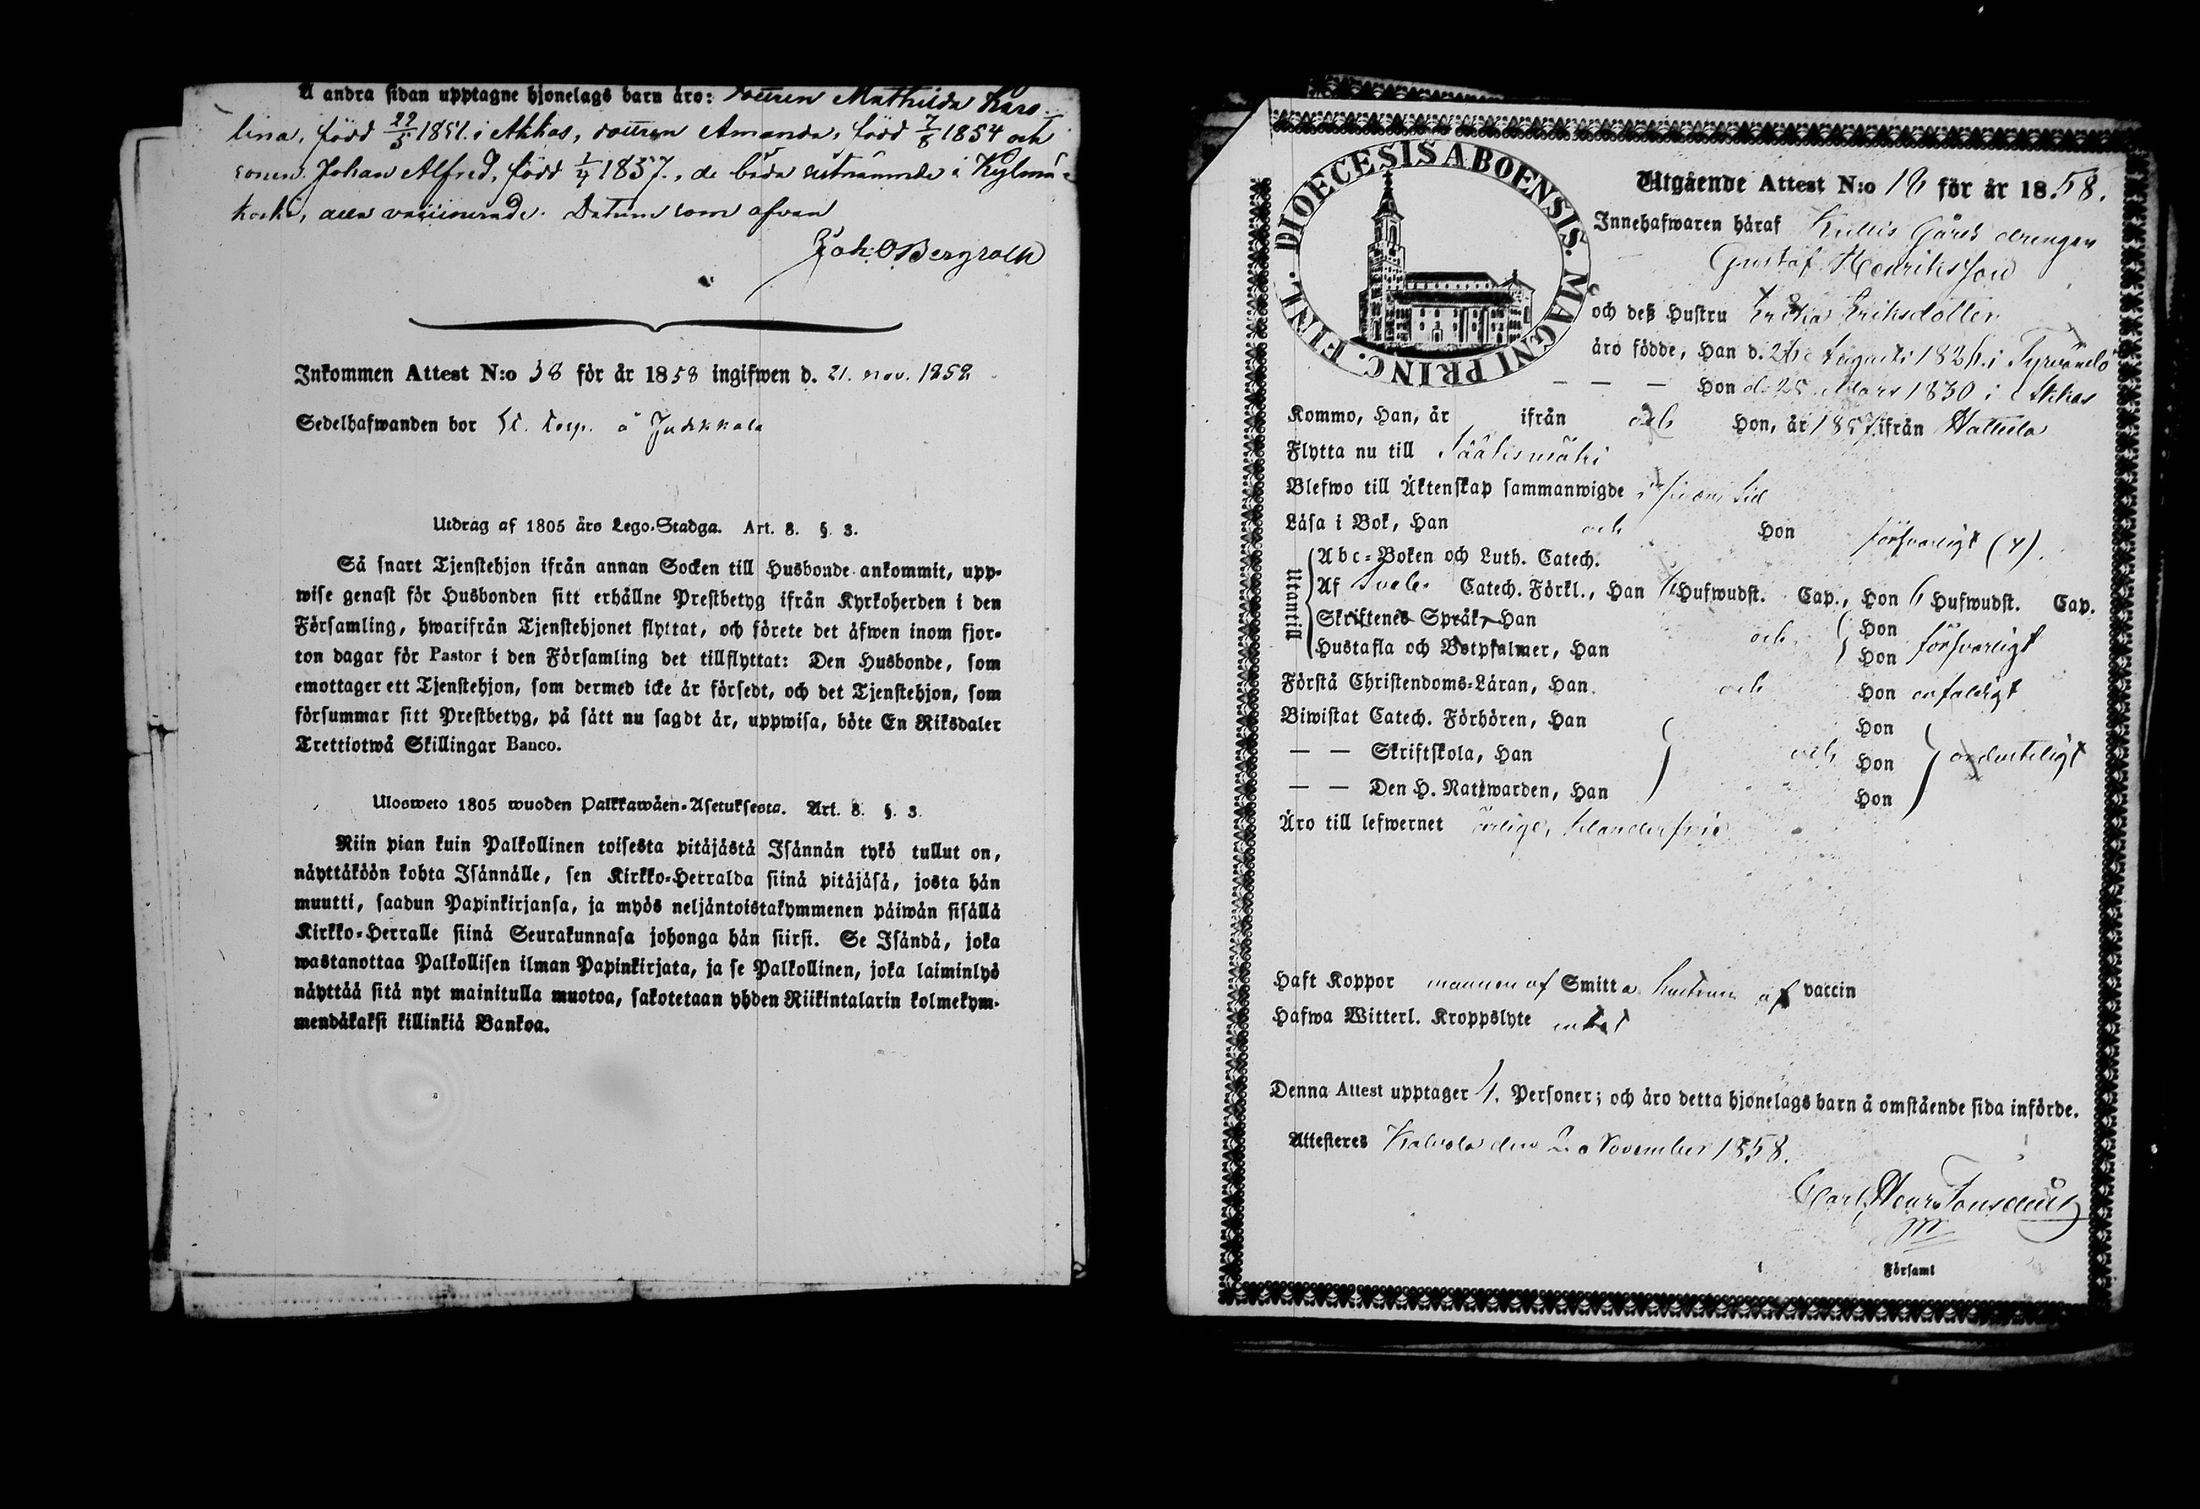 Å andra sidan upptagne hjonelags barn äro: dottren Mathilda Karo-
lina, född 22/5 1851 i Akkas, dottren Amanda, född 7/8 1854 och
sonen Johan Alfred, född 1/4 1857., de båda sistnämnde i Kylmä-
koski, alla vaccinerade. Datum som ofvan
Joh. O Bergroth
Inkommen Attest N:o 38 för år 1858 ingifwen d. 21. nov. 1858
Sedelhafwanden bor St. torp. å Jutikkala
Utdrag af 1805 års Lego-Stadga. Art. 8. §. 3.
Så snart Tjenstehjon ifrån annan Socken till Husbonde ankommit, upp-
wise genast för Husbonden sitt erhållne Prestbetyg ifrån Kyrkoherden i den
Församling, hwarifrån Tjenstehjonet flyttat, och förete det äfwen inom fjor-
ton dagar för Pastor i den Församling det tillflyttat: Den Husbonde, som
emottager ett Tjenstehjon, som dermed icke är försedt, och det Tjenstehjon, som
försummar sitt Prestbetyg, på sätt nu sagdt är, uppwisa, böte En Riksdaler
Trettiotwå Skillingar Banco.
Ulosweto 1805 wuoden Palkkawäen-Asetuksesta. Art. 8. §. 3.
Niin pian kuin Palkollinen toisesta pitäjästä Isännän tykö tullut on,
näyttäköön kohta Isännälle, sen Kirkko-Herralda siinä pitäjäsä, josta hän
muutti, saadun Papinkirjansa, ja myös neljäntoistakymmenen päiwän sisällä
Kirkko-Herralle siinä Seurakunnasa johonga hän siirsi. Se Isändä, joka
wastanottaa Palkollisen ilman Papinkirjata, ja se Palkollinen, joka laiminlyö
näyttää sitä nyt mainitulla muotoa, sakotetaan yhden Riikintalarin kolmekym-
mendäkaksi killinkiä Bankoa.
DIOECESIS ABOENSIS. MAGNI PRINC. FINL.
Utgående Attest N:o 18 för år 1858.
Innehafwaren häraf Kullis Gårds drengen
Gustaf Henriksson
och deß Hustru Erika Eriksdotter
äro födde, Han d. 26 Augusti 1826 i Tyrvändö
— — — Hon d. 25 Mars 1830 i Akkas
Kommo, Han, år ifrån och Hon, år 1857 ifrån Hattula
Flytta nu till Sääksmäki
Blefwo till Äktenskap sammanwigde i sinom tid
Läsa i Bok, Han och Hon försvarligt (4).
Utantill
Abc-Boken och Luth. Catech.
Af Sveb. Catech. Förkl., Han 6 Hufwudst. Cap., Hon 6 Hufwudst. Cap.
Skriftenes Språk, Han och Hon försvarligt
Hustafla och Botpsalmer, Han Hon
Förstå Christendoms-Läran, Han och Hon enfaldigt
Biwistat Catech. Förhören, Han Hon
— — Skriftskola, Han och Hon ordenteligt
— — Den H. Nattwarden, Han Hon
Äro till lefwernet ärlige,
Haft Koppor mannen af Smitta hustrun af vaccin
Hafwa Witterl. Kroppslyte intet
Denna Attest upptager 4. Personer; och äro detta hjonelags barn å omstående sida införde.
Attesteres Kalvola den 20 November 1858.
Carl Henr
Församl